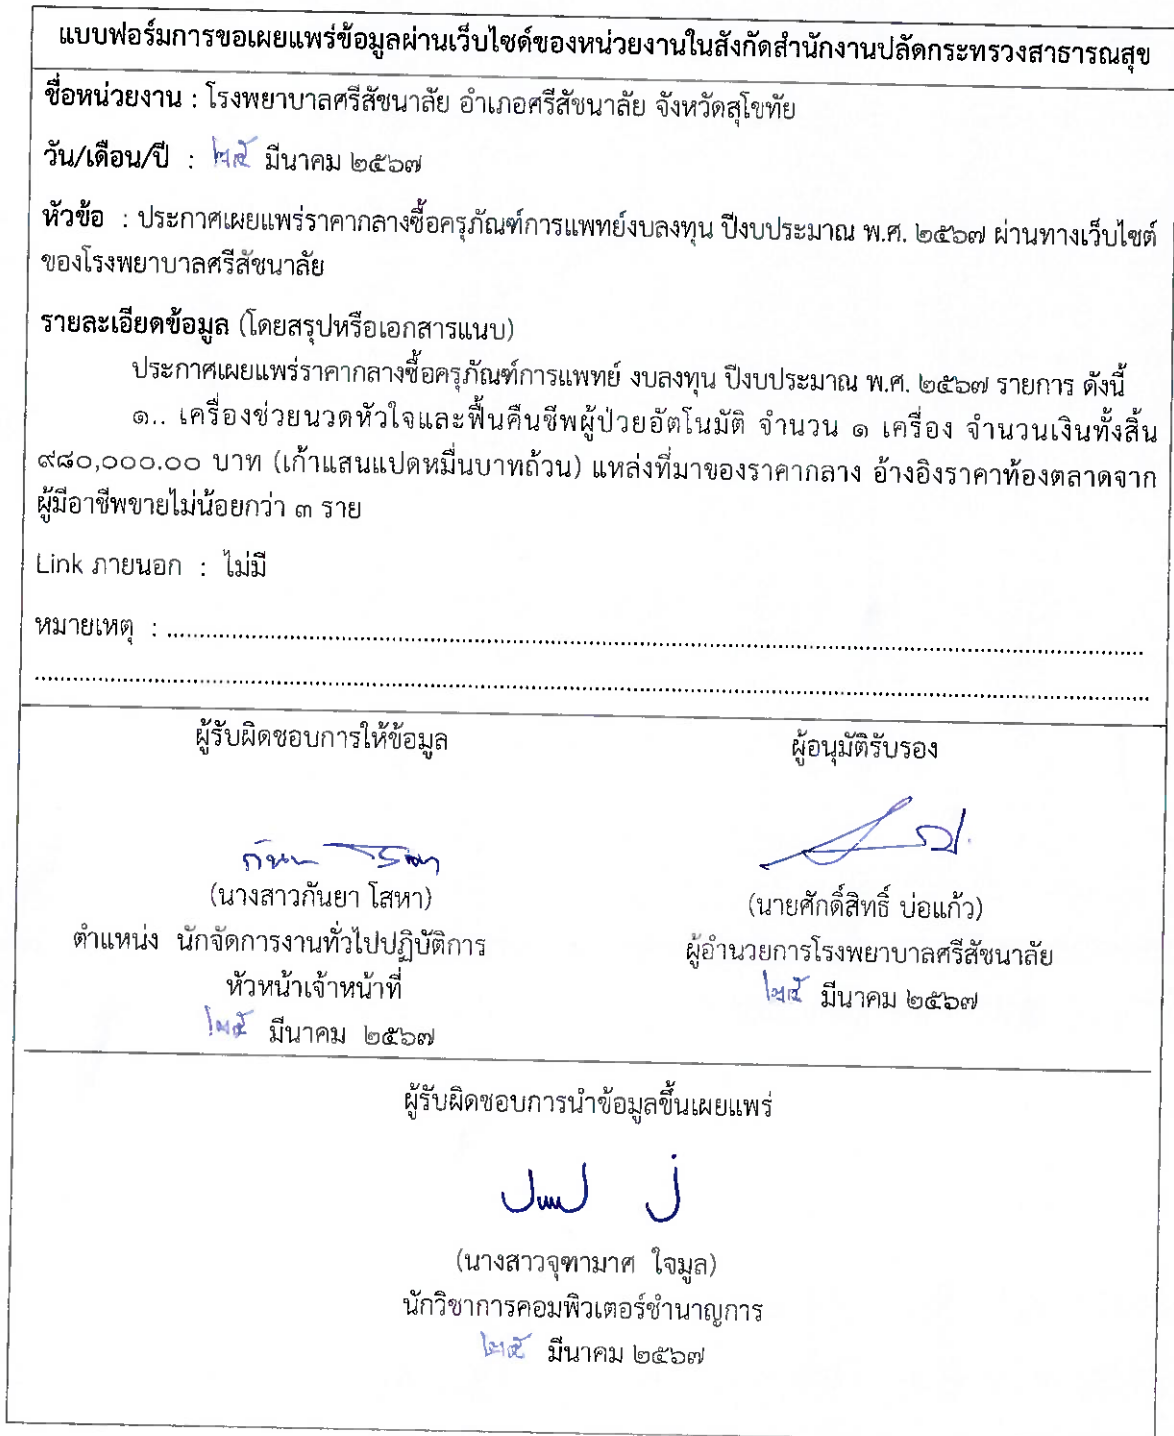 แบบฟอร์มการขอเผยแพร่ข้อมูลผ่านเว็บไซด์ของหน่วยงานในสังกัดสำนักงานปลัดกระทรวงสาธารณสุข
ชื่อหน่วยงาน : โรงพยาบาลศรีสัชนาลัย อำเภอศรีสัชนาลัย จังหวัดสุโขทัย
วัน/เดือน/ปี : ๒๕ มีนาคม ๒๕๖๗
หัวข้อ : ประกาศเผยแพร่ราคากลางซื้อครุภัณฑ์การแพทย์งบลงทุน ปีงบประมาณ พ.ศ. ๒๕๖๗ ผ่านทางเว็บไซต์
ของโรงพยาบาลศรีสัชนาลัย
รายละเอียดข้อมูล (โดยสรุปหรือเอกสารแนบ)
ประกาศเผยแพร่ราคากลางซื้อครุภัณฑ์การแพทย์ งบลงทุน ปีงบประมาณ พ.ศ. ๒๕๖๗ รายการ ดังนี้
๑.. เครื่องช่วยนวดหัวใจและฟื้นคืนชีพผู้ป่วยอัตโนมัติ จำนวน ๑ เครื่อง จำนวนเงินทั้งสิ้น
๙๘๐,๐๐๐.๐๐ บาท (เก้าแสนแปดหมื่นบาทถ้วน) แหล่งที่มาของราคากลาง อ้างอิงราคาท้องตลาดจาก
ผู้มีอาชีพขายไม่น้อยกว่า ๓ ราย
Link ภายนอก : ไม่มี
หมายเหตุ : ............................................................
............................................................
ผู้รับผิดชอบการให้ข้อมูล
(นางสาวกันยา โสหา)
ตำแหน่ง นักจัดการงานทั่วไปปฏิบัติการ
หัวหน้าเจ้าหน้าที่
๒๕ มีนาคม ๒๕๖๗
ผู้อนุมัติรับรอง
(นายศักดิ์สิทธิ์ บ่อแก้ว)
ผู้อำนวยการโรงพยาบาลศรีสัชนาลัย
๒๕ มีนาคม ๒๕๖๗
ผู้รับผิดชอบการนำข้อมูลขึ้นเผยแพร่
(นางสาวจุฑามาศ ใจมูล)
นักวิชาการคอมพิวเตอร์ชำนาญการ
๒๕ มีนาคม ๒๕๖๗